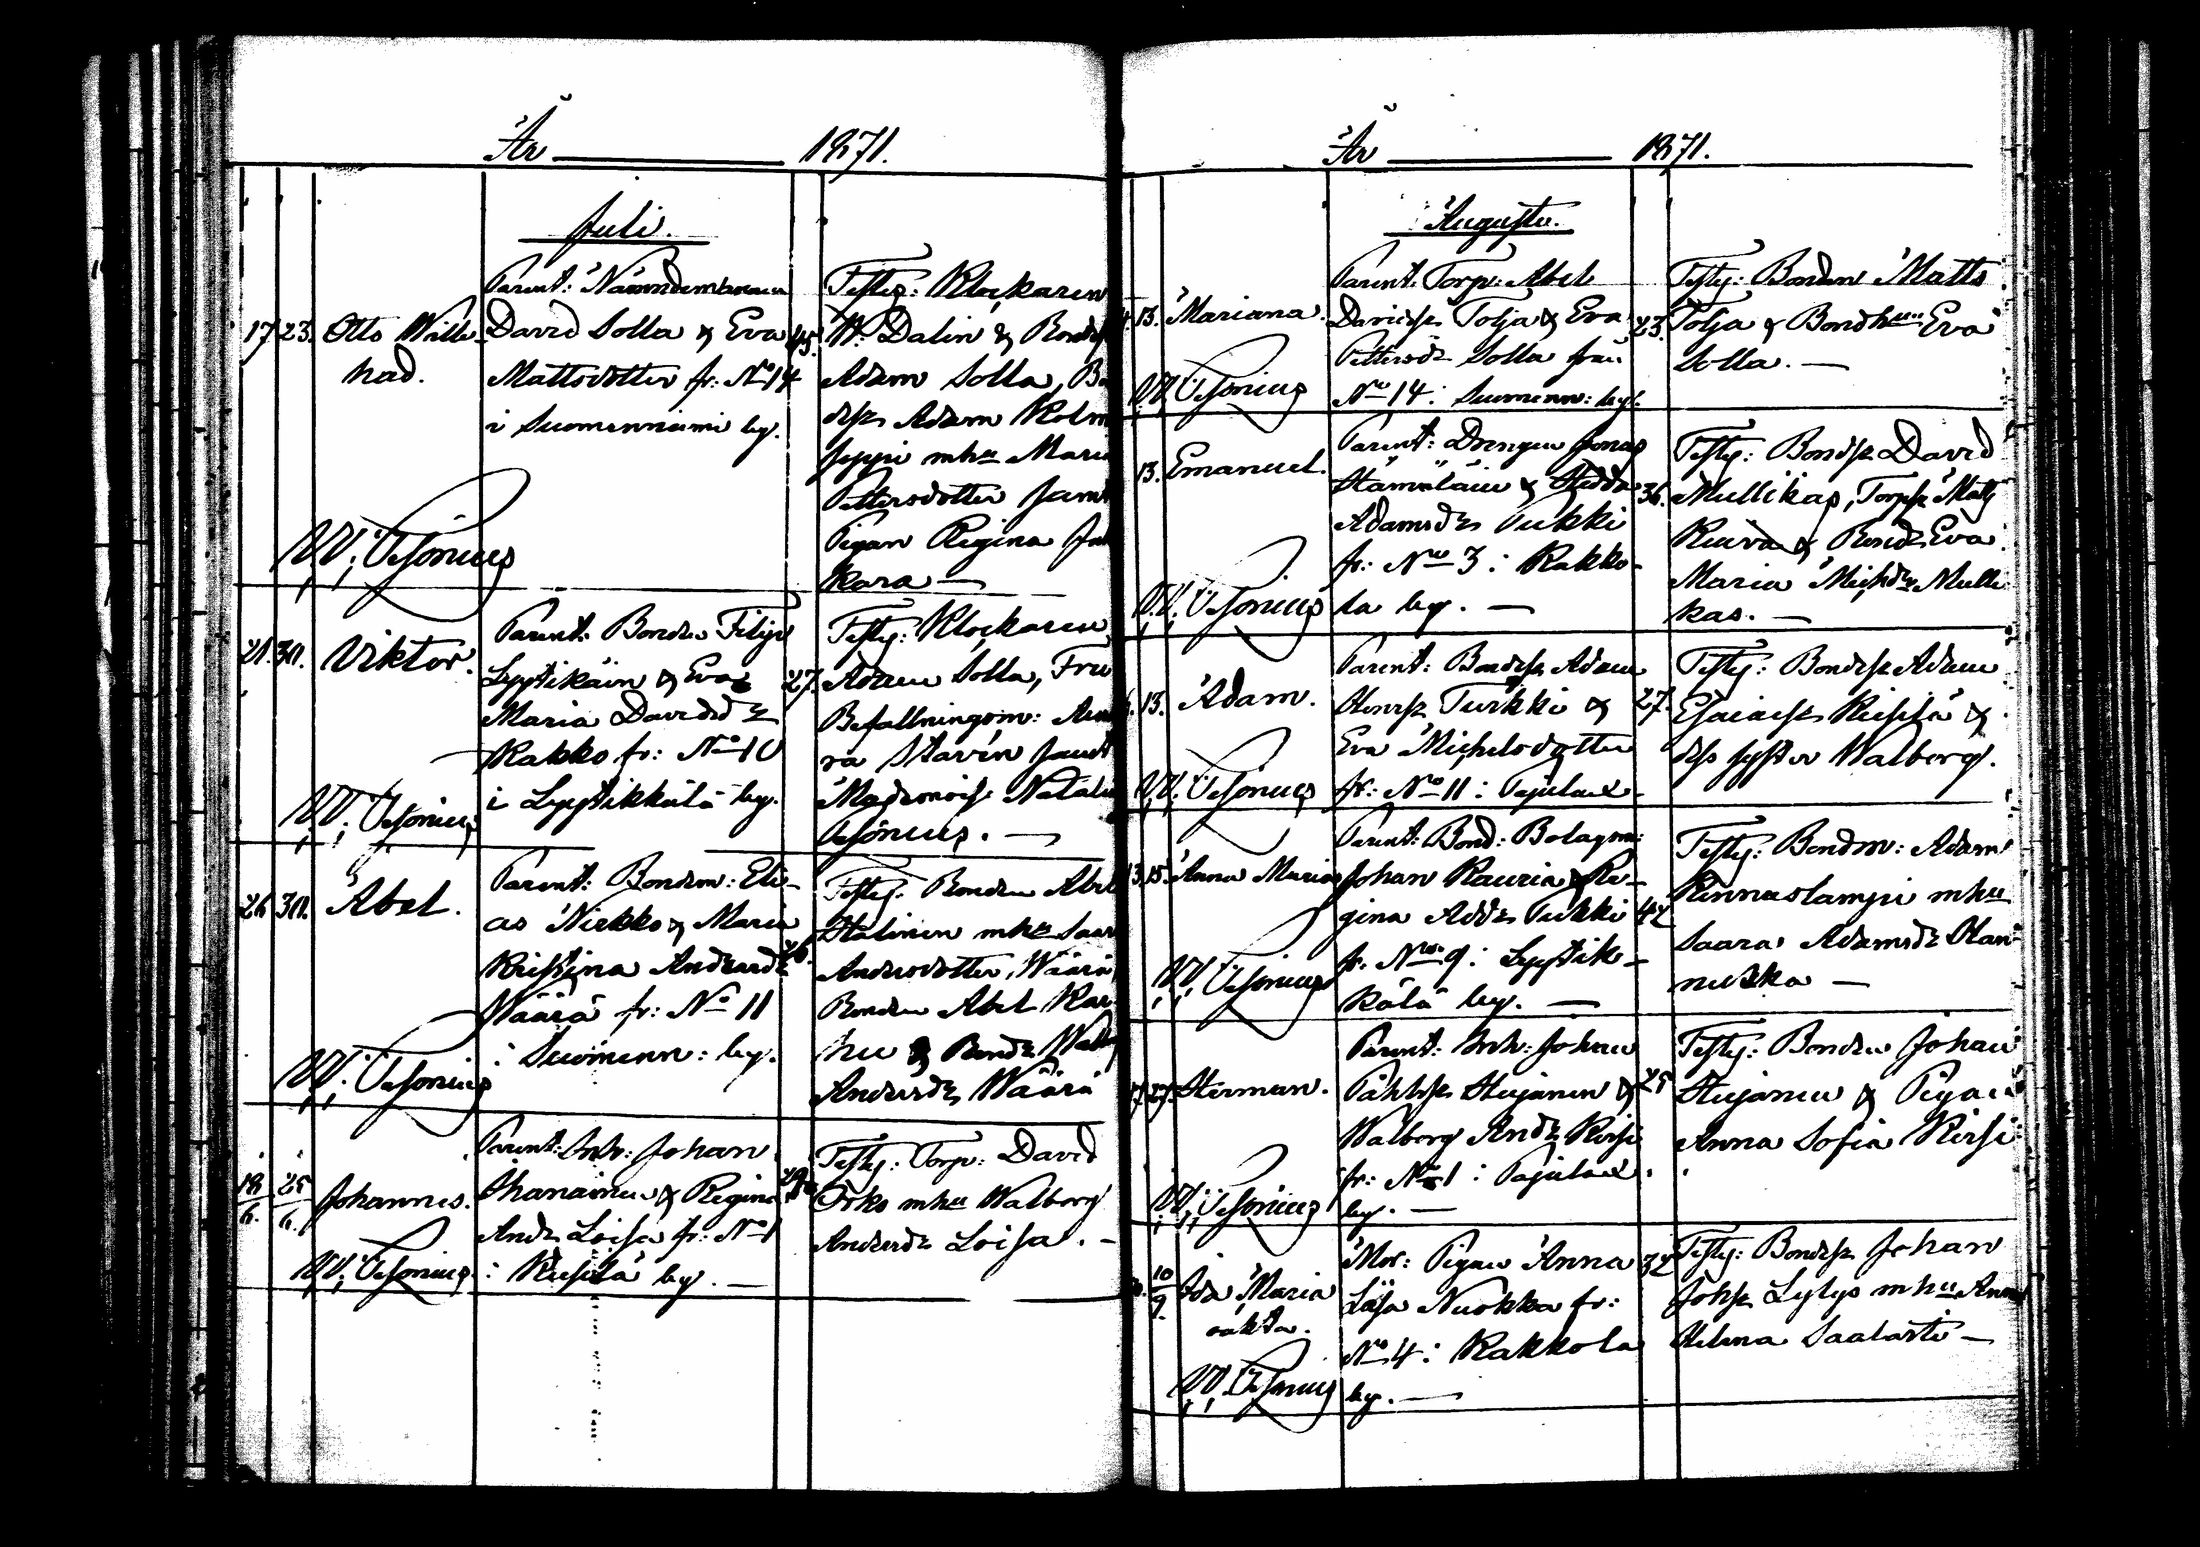 År 1871.
Juli.
17 23. Otto Wille-
had.
Parent: Nämndemannen
David Solla & Eva
Mattsdotter fr: No 14
i Suomenniemi by.
45.
Testes: Klockaren
W. Dalin &
Adam Solla,
Adam
mhu
Pettersdotter
Pigan Regina
kara —
W. Vesonius
21. 30. Viktor.
Parent: Bonden Filip
Lyytikäin & Eva
Maria Davidsdr
Rakko fr: No 10
i Lyytikkälä by.
27.
Testes: Klockaren
Adam Solla, Fru
Befallningsm:
ra Stavén
Natalia
Vesonius. —
W. Vesonius
26 30. Abel.
Parent: Bondem: Eli-
as Nirkko & Maria
Kristina Andersdr
Wäärä fr: No 11
i Suomenn: by.
Testes: Bonden Abel
Halinen mhu
Andersdotter, Wäärä
Bonden Abel
hu & Bondr
Andersdr Wäärä
W. Vesonius
18/6. 25/6. Johannes.
Parent: Inh: Johan
& Regina
Andr Loisa fr: No 1
i by. —
29
Testes: Torp: David
Orko mhu Walborg
Andersdr Loisa. —
W. Vesonius
År 1871.
Augusti.
13. Mariana.
Parent: Torp: Abel
Davidss Tolja & Eva
Pettersdr Solla från
No 14 i Suomenn: by.
23.
Testes: Bonden Matts
Tolja & Bondhun Eva
Solla. —
W. Vesonius
13. Emanuel.
Parent: Drengen Jonas
Hämäläin & Hedda
Adamsdr Tukki
fr: No 3 i Rakko-
la by. —
36.
Testes: Bondss David
Mullikas, Torpss Matts
& Bondr Eva
Maria Michdr Mulli-
kas. —
W. Vesonius
13. Adam.
Parent: Bondss Adam
Henrss Turkki &
Eva Michelsdotter
fr: No 11 i Pajulax.
27.
Testes: Bondss Adam
Esaiass &
dess syster Walborg.
W. Vesonius
13 15. Anna Maria
Parent: Bond: Bolagsm:
Johan Kauria & Re-
gina Addr Tukki
fr. No 9 i Lyytik-
kälä by. —
42
Testes: Bondm: Adam
Rinnaslampi mhu
Saara Adamsdr Han-
nukka —
W. Vesonius
17. 27. Herman.
Parent: Inh: Johan
Påhlss Heijanen &
Walborg Andr Kirsi
fr: No 1 i Pajulax
by. —
25
Testes: Bonden Johan
Heijanen & Pigan
Anna Sofia Kirsi
W. Vesonius
10/9. Ida Maria
oäkta.
Mor: Pigan Anna
Lisa Nuokka fr:
No 4 i Rakkola
by. —
32
Testes: Bondss Johan
Johss Lylys mhu Anna
Helena Saalasti —
W. Vesonius